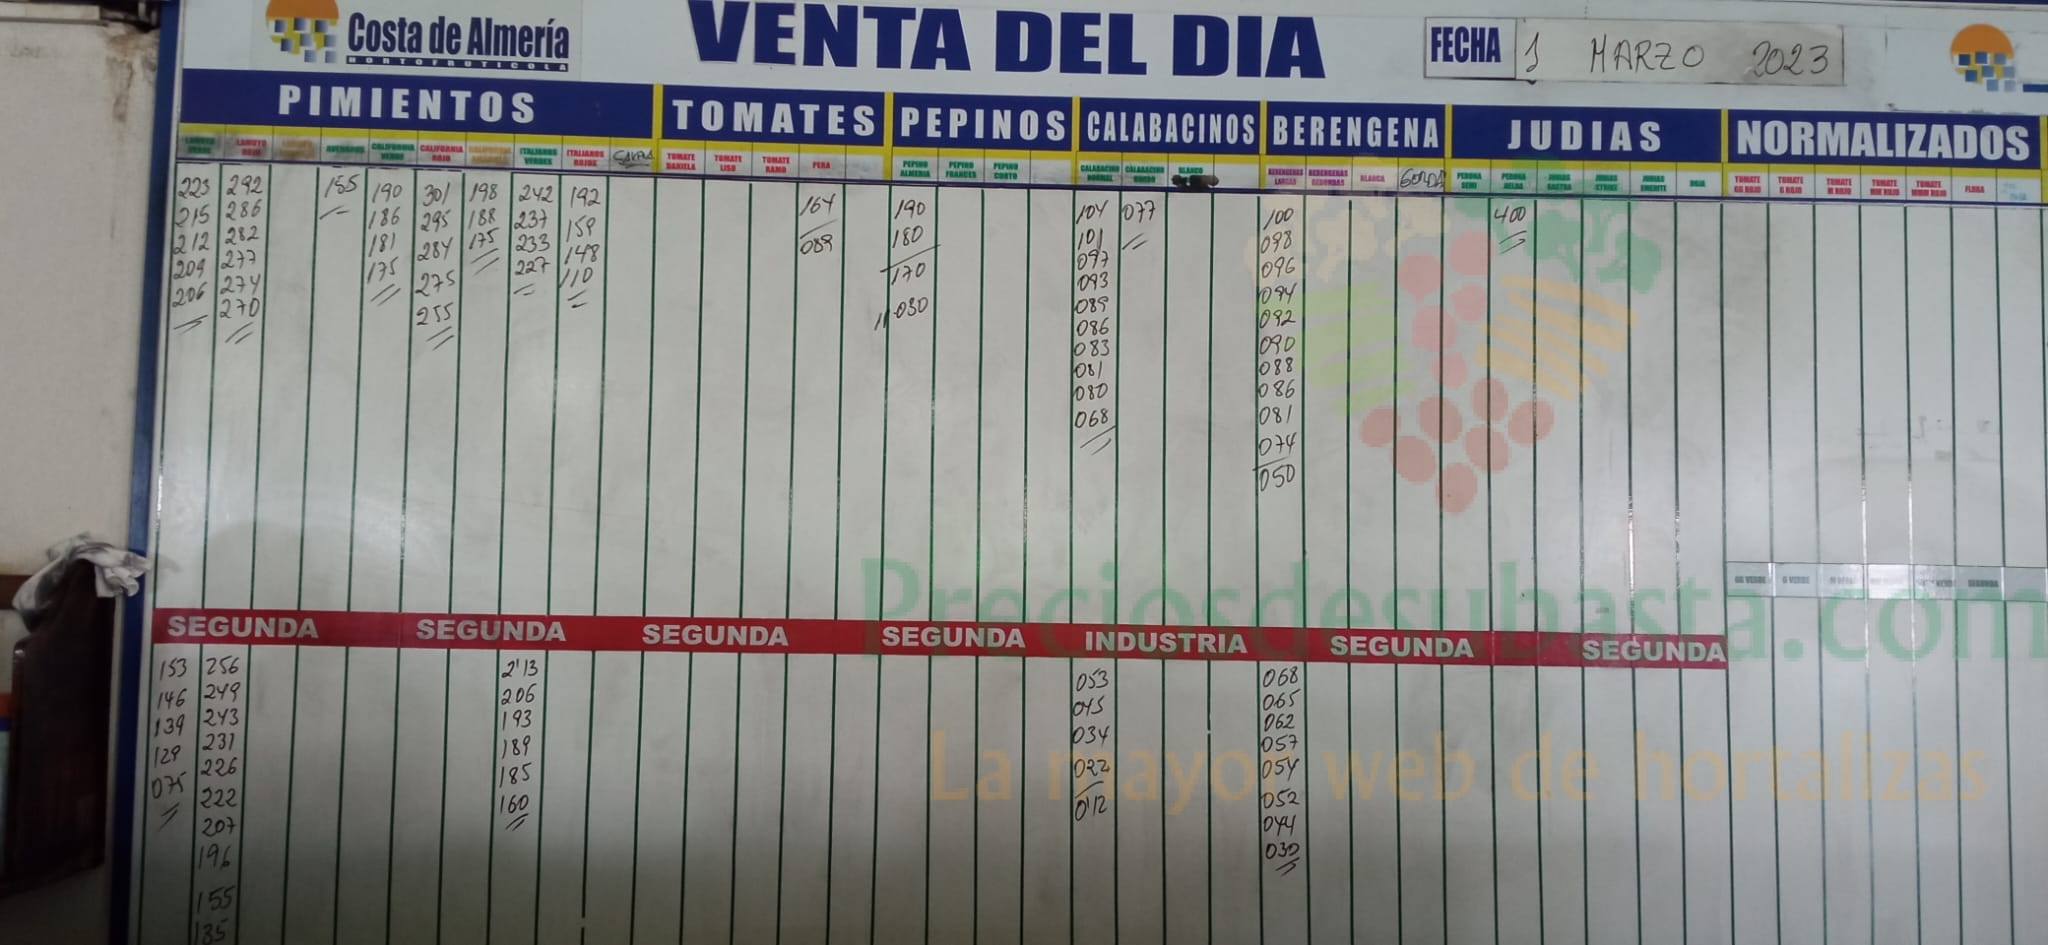 Costa de Almería
HORTOFRUTICOLA
VENTA DEL DIA
FECHA 1 MARZO 2023
PIMIENTOS TOMATES PEPINOS CALABACINOS BERENGENA JUDIAS NORMALIZADOS
LAMUYO VERDE LAMUYO ROJO CALIFORNIA VERDE CALIFORNIA ROJO CALIFORNIA AMARILLO ITALIANOS VERDES ITALIANOS ROJOS TOMATE DANIELA TOMATE LISO TOMATE RAMO PERA PEPINO ALMERIA PEPINO FRANCES PEPINO CORTO CALABACINO NORMAL CALABACINO GORDO BLANCO BERENGENAS LARGAS BERENGENAS REDONDAS BLANCA GORDA PERONA SEMI PERONA HELDA JUDIAS RASTRA JUDIAS STRIKE JUDIAS EMERITE ROJA TOMATE GG ROJO TOMATE G ROJO TOMATE M ROJO TOMATE MM ROJO TOMATE MMM ROJO FLORA
223 292 155 190 301 198 242 192 164 190 104 077 100 400
215 286 186 295 188 237 159 089 180 101 098
212 282 181 284 175 233 148 170 097 096
209 277 175 275 227 110 030 093 094
206 274 255 089 092
270 086 090
083 088
081 086
080 081
068 074
050
GG VERDE G VERDE SEGUNDA
Preciosdesubasta.com
SEGUNDA SEGUNDA SEGUNDA SEGUNDA INDUSTRIA SEGUNDA SEGUNDA
153 256 2'13 053 068
146 249 206 045 065
139 243 193 034 062
129 231 189 022 057
075 226 185 0'12 054
222 160 052
207 044
196 030
155
135
La mayor web de hortalizas